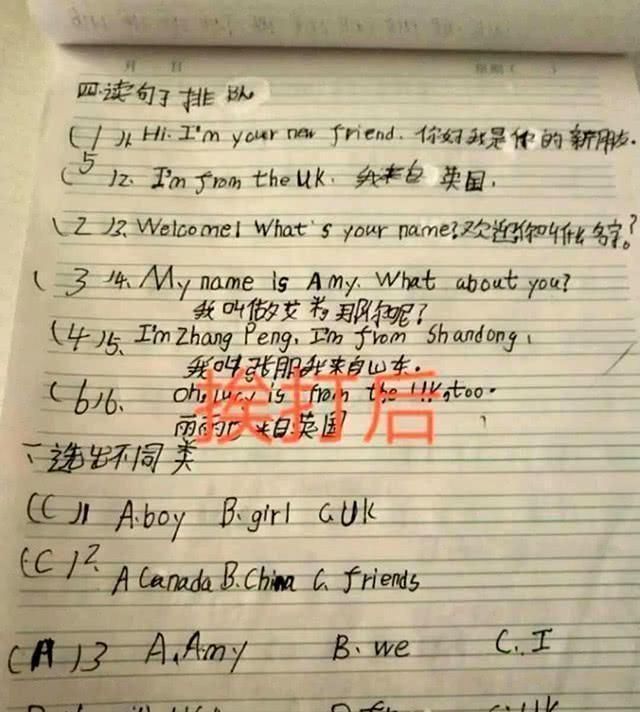 月 日 星期( )
四.读句子排队
(1)1. Hi. I'm your new friend. 你好我是你的新朋友.
(5)2. I'm from the UK. 我来自英国.
(2)3. Welcome! What's your name? 欢迎你叫什么名字?
(3)4. My name is Amy. What about you?
我叫做艾米,那你呢?
(4)5. I'm Zhang Peng, I'm from Shandong,
我叫张朋我来自山东.
(6)6. oh, is from the UK, too.
来自英国
挨打后
选出不同类
(C)1 A.boy B.girl C.UK
(C)2. A Canada B.China C. friends
(A)3 A.Amy B. we C. I